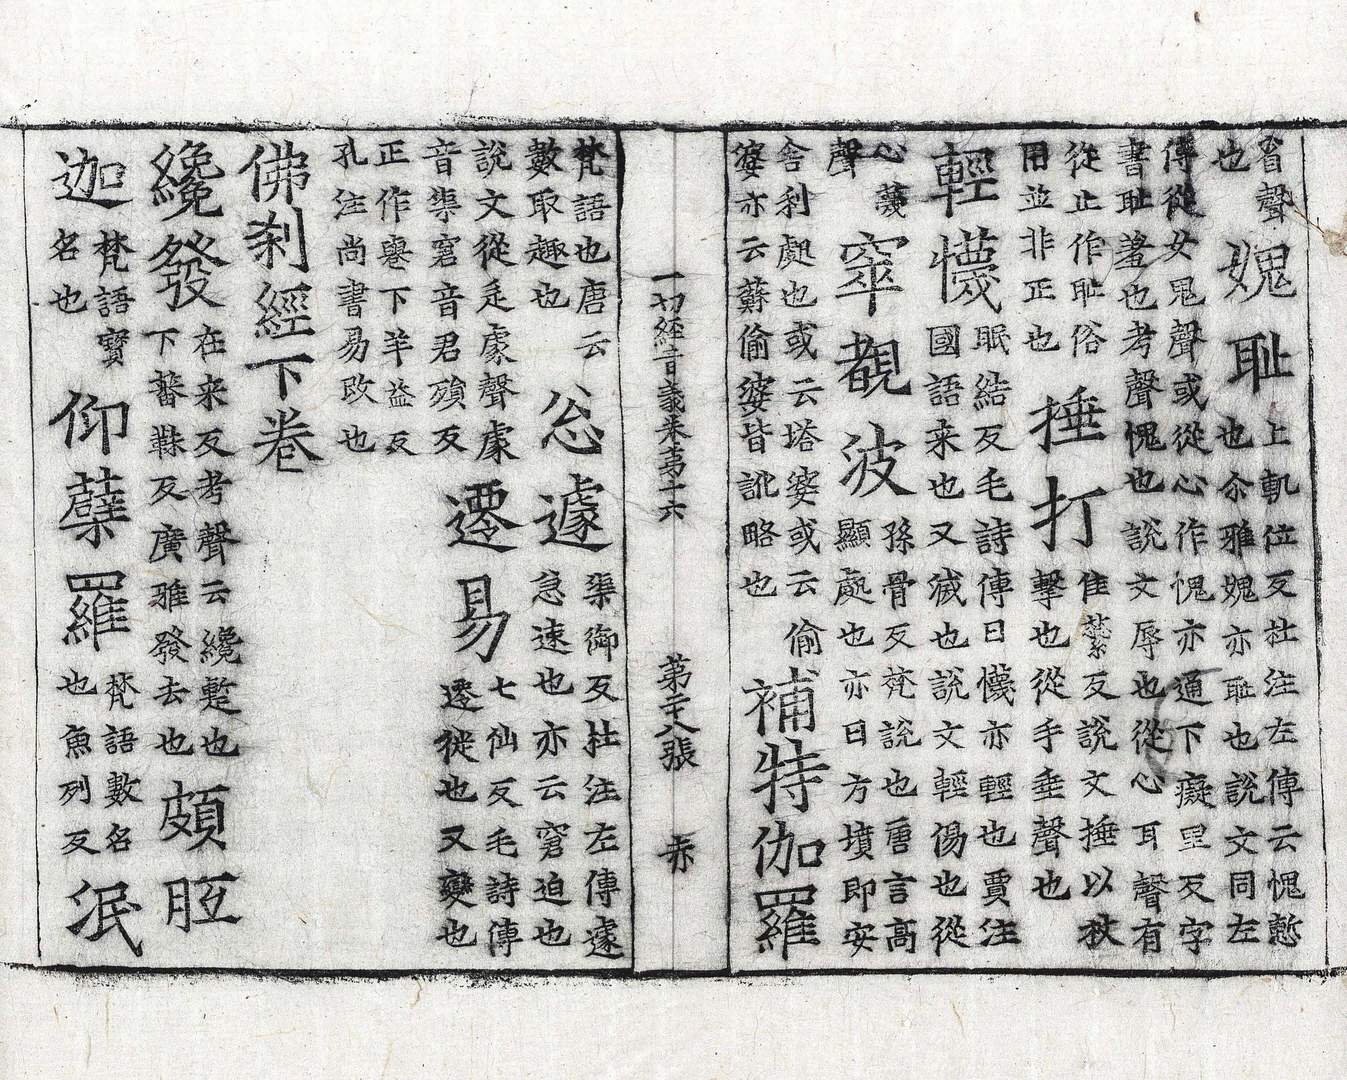 眢聲
也
媿耻
上軌位反杜注左傳云愧慙
也尒雅媿亦耻也說文同左
傳從女鬼聲或從心作愧亦通下癡里反字
書耻羞也考聲愧也說文辱也從心耳聲有
從止作耻俗
用並非正也
捶打
隹蘂反說文捶以杖
擊也從手垂聲也
輕懱
眠結反毛詩傳曰懱亦輕也賈注
國語来也又滅也說文輕傷也從
心蔑
聲
窣覩波
孫骨反梵說也唐言高
顯處也亦曰方墳即安
舍利處也或云塔婆或云偷
婆亦云蘇偷婆皆訛略也
補特伽羅
一切經音義卷第十六 第二十八張 亦
梵語也唐云
數取趣也
忩遽
渠御反杜注左傳遽
急速也亦云窘迫也
說文從辵豦聲豦
音渠窘音君殞反
遷易
七仙反毛詩傳
遷徙也又變也
正作䙴下羊益反
孔注尚書易改也
佛刹經下卷
纔發
在来反考聲云纔蹔也
下蕃韈反廣雅發去也
頗胝
迦
梵語寶
名也
仰蘗羅
梵語數名
也魚列反
泯